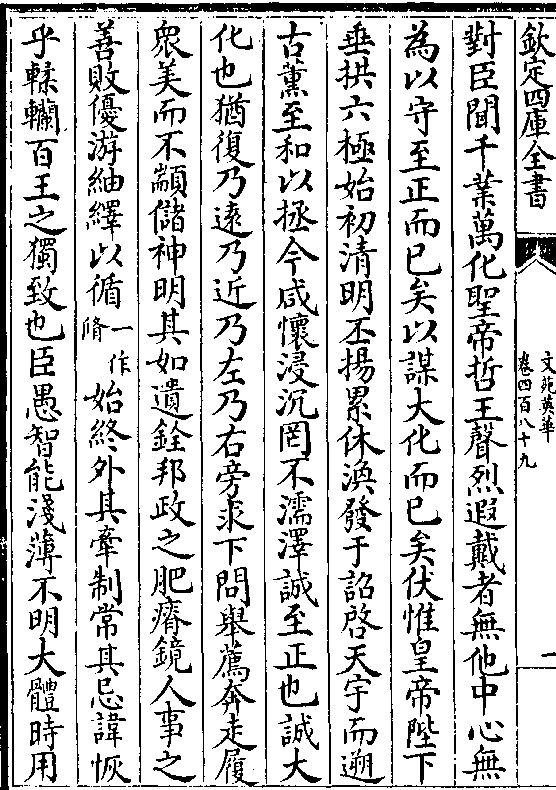 欽定四庫全書
文苑英華
卷四百八十九
一
對臣聞千業萬化聖帝哲王聲烈遐戴者無他中心無
為以守至正而已矣以謀大化而已矣伏惟皇帝陛下
垂拱六極始初清明丕揚累休渙發于詔啓天宇而遡
古薰至和以拯今咸懷浸沉罔不濡澤誠至正也誠大
化也猶復乃遠乃近乃左乃右旁求下問舉薦奔走履
衆美而不顓儲神明其如遺銓邦政之肥瘠鏡人事之
善敗優游紬繹以循一作脩始終外其牽制常其忌諱恢
乎轇轕百王之獨致也臣愚智能淺薄不明大體時用